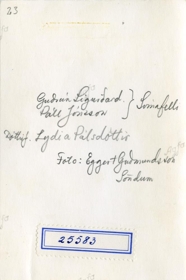 23
Guðrún Sigurðard. } Svínafelli
Páll Jónsson
Dóttir þ. Lydia Pálsdóttir
Foto: Eggert Guðmundsson
Söndum
25583